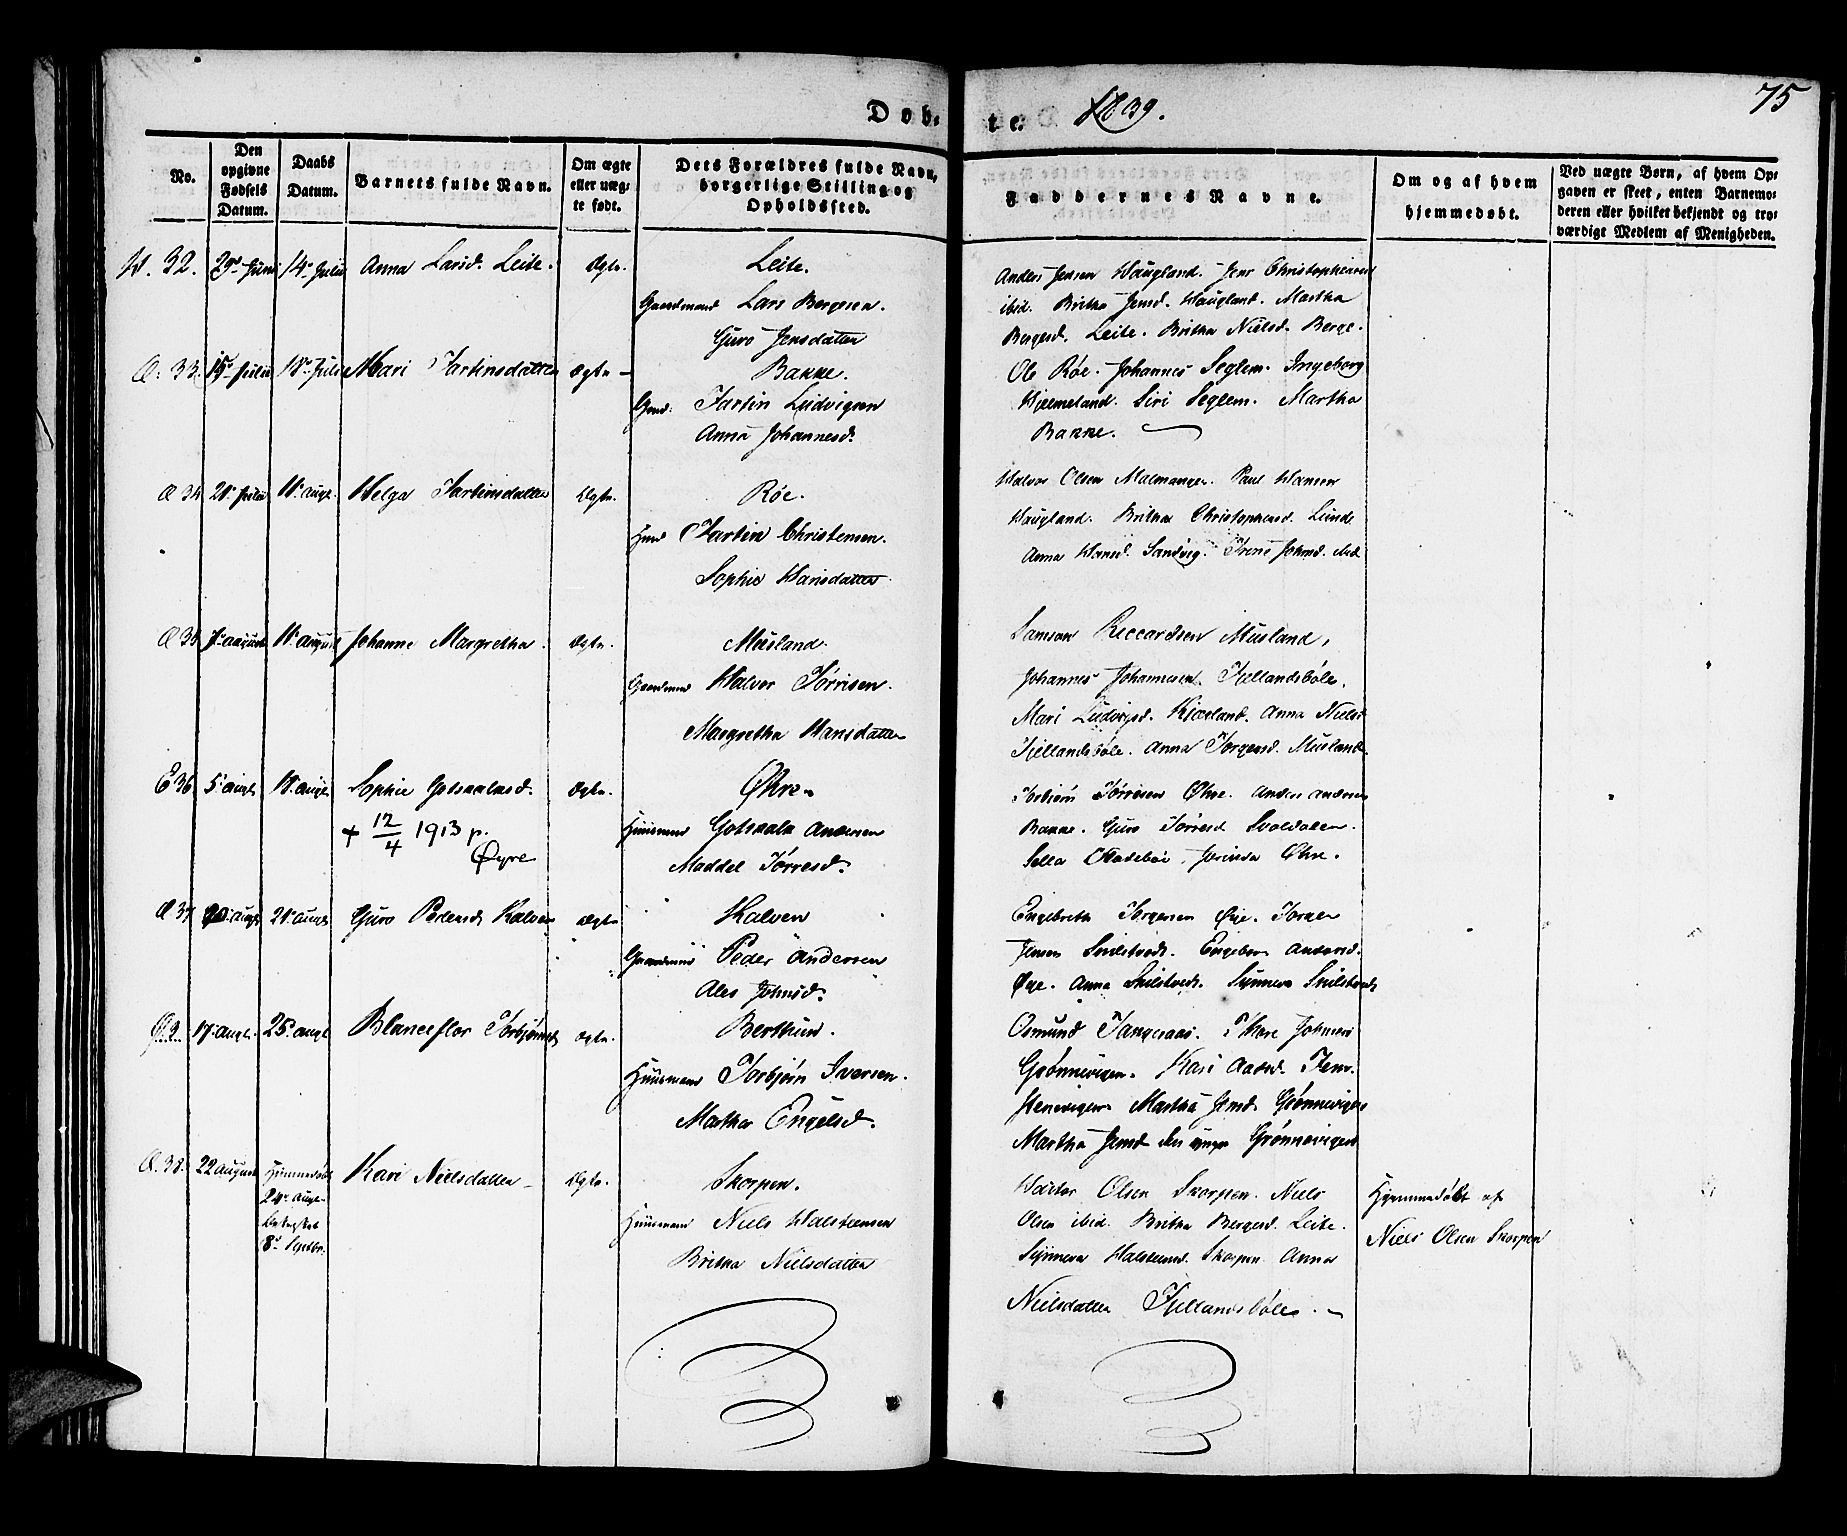 Døb-
te.
1839.
75
No.
Den
opgivne
Fødsels
Datum.
Daabs
Datum.
Barnets fulde Navn.
Om ægte
eller uæg-
te født.
Dets Forældres fulde Navn,
borgerlige Stilling og
Opholdssted.
Faddernes Navne.
Om og af hvem
hjemmedøbt.
Ved uægte Børn, af hvem Op-
gaven er skeet, enten Barnemo-
deren eller hvilket bekjendt og tro-
værdigt Medlem af Menigheden.
32. 29de Juni 14de Julii Anna Larsd. Leite. Ægte. Leite.
Gaardmand Lars Bergesen.
Guro Jensdatter
Anders Jensen Haugland. Jens Christophersen
ibid. Britha Jensd. Haugland. Martha
Bergesd. Leite. Britha Nielsd. Berge.
33. 15de Julii 18de Julii Mari Tarteinsdatter Ægte Bakke.
Gmd. Tartein Ludvigsen
Anna Johannesd.
Ole Röe. Johannes Seglem. Ingeborg
Hjelmeland. Siri Seglem. Martha
Bakke.
34. Julii 18de Augt. Helga Tarteinsdatter Ægte. Röe.
Hmd Tartein Christensen.
Sophie Hansdatter
Halvor Olsen Malmanger. Paul Hansen
Haugland. Britha Christophersd. Lunde
Anna Hansd. Sandvig. Johnsd. ibid
35 7de August 18de August Johanne Margretha. Ægte. Musland.
Gaardmand Halvor Törrisen.
Margretha Hansdatter
Samson Riccardsen Musland,
Johannes Johannesen Tjellandsböle.
Mari Ludvigsd. Kjærland. Anna Nielsd
Tjellandsböle. Anna Jorgensd. Musland.
36 5te Augt. 18de Augt. Sophie Gotskalksd. Ægte. Øhre.
+ 12/4 1913 p.
Øyre
Huusmand Gotskalk Andersen
Maddel Törresd.
Torbiörn Törresen Øhre. Anders Andersen
Bakke. Guro Törresd Svoldalen.
Øhre.
37 Augt. Augt. Guro Pedersd. Kalven Ægte. Kalven
Gaardmand Peder Andersen
Ales Johnsd.
Engebreth Torgersen Øye. Torger
Jensen Skilstved. Andersd.
Øye. Anna Skilstved. Synneva Skilstved
17de Augt. 25de Augt. Blanceflor Torbjörnsd Ægte. Berthun.
Huusmand Torbjörn Iversen.
Martha Engelsd.
Osmund Tangeraas. Johnsen
Grönnevigen. Kari Aadsd.
Martha Jensd. Grönnevigen
Martha Jensd den unge Grönnevigen
38. 22 August Hiemmedöbt Kari Nielsdatter Ægte. Skorpen.
24de Augt.
8de Septbr.
Huusmand Niels Halsteensen
Britha Nielsdatter
Olsen Skorpen. Niels
Olsen ibid. Britha Bergesd. Leite.
Synneva Halsteensd. Skorpen. Anna
Nielsdatter Tjellandsböle.
Hjemmedöbt af
Niels Olsen Skorpen